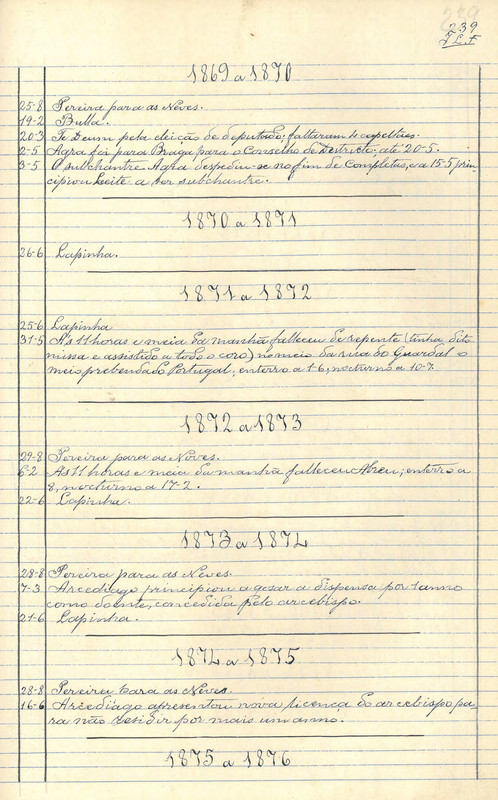 239
1869 a 1870
25-8 Pereira para as Neves.
19-2 Bulla.
20-3 Te Deum pela eleição de deputado; faltaram 4 capellães.
2-5 Agra foi para Braga para o Conselho de Districto; até 20-5.
3-5 O subchantre Agra despediu-se no fim de Completas, e a 15-5 prin-
cipiou Leite a ser subchantre.
1870 a 1871
26-6 Lapinha.
1871 a 1872
25-6 Lapinha
31-5 Ás 11 horas e meia da manhã falleceu de repente (tinha dito
missa e assistido a todo o coro) no meio da rua do Guardal o
meio prebendado Portugal; enterro a 1-6, nocturno a 10-7.
1872 a 1873
29-8 Pereira para as Neves.
6-2 Ás 11 horas e meia da manhã falleceu Abreu; enterro a
8, nocturno a 17-2.
22-6 Lapinha.
1873 a 1874
28-8 Pereira para as Neves.
7-3 Arcediago principiou a gosar a dispensa por 1 anno
como doente, concedida pelo arcebispo.
21-6 Lapinha.
1874 a 1875
28-8 Pereira para as Neves.
16-6 Arcediago apresentou nova licença do arcebispo pa-
ra não residir por mais um anno.
1875 a 1876